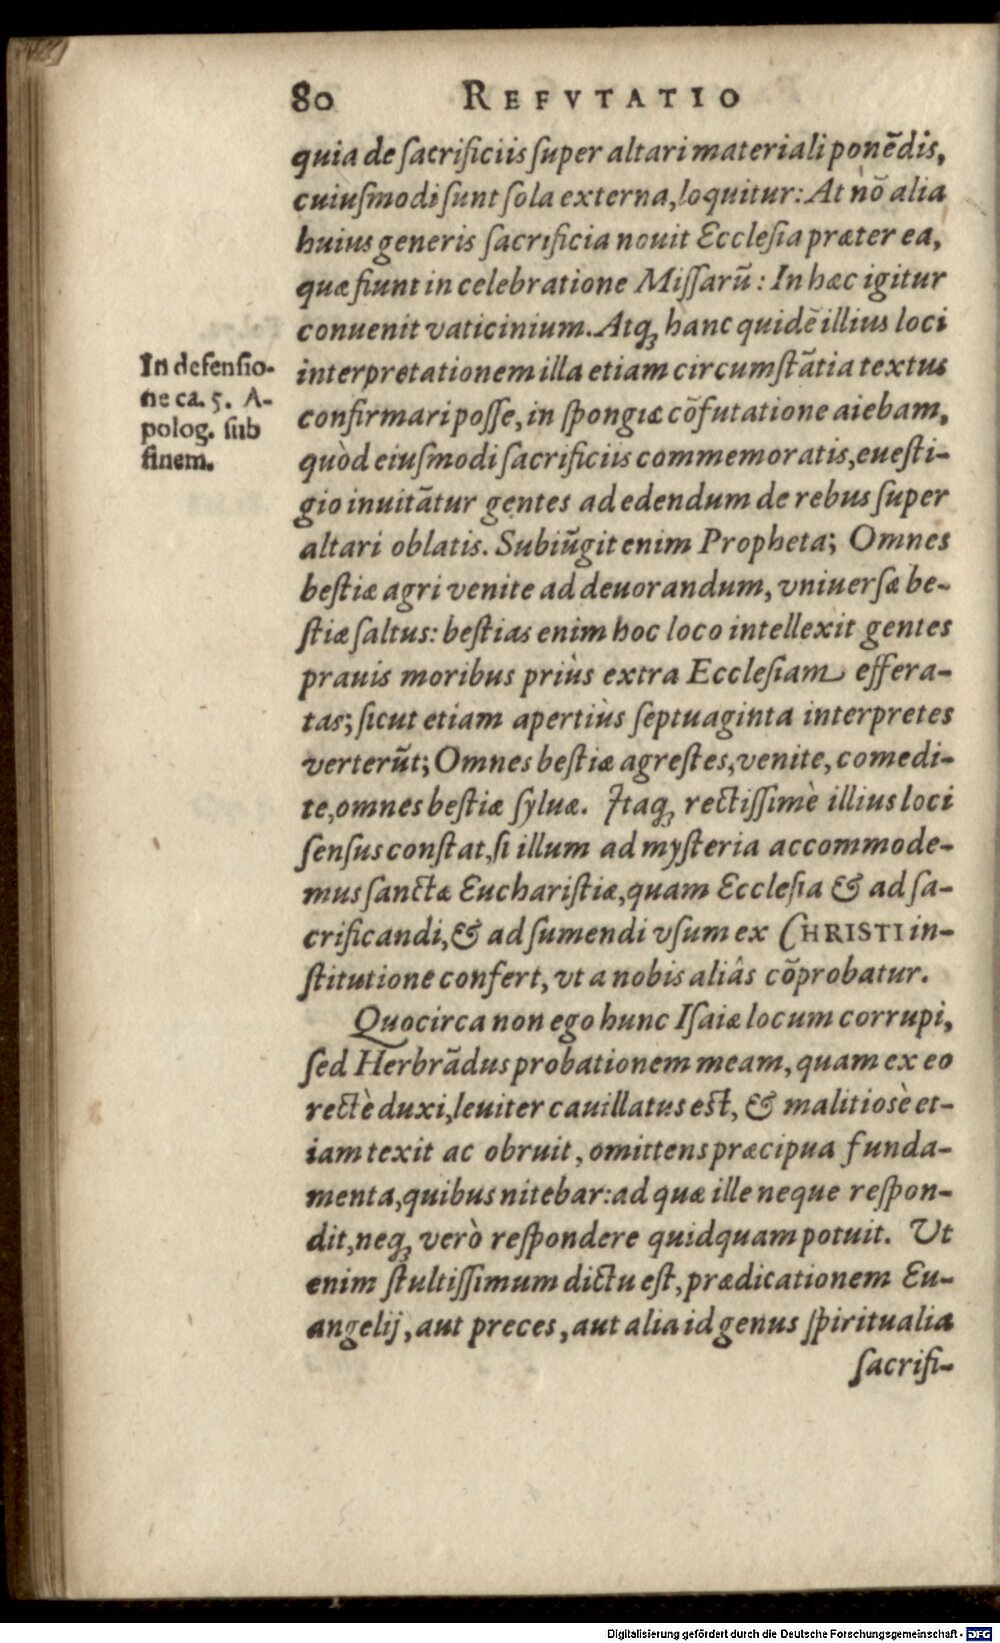 80 REFVTATIO
quia de ſacrificiis ſuper altari materiali ponẽdis,
cuiuſmodi ſunt ſola externa, loquitur: At nõ alia
huius generis ſacrificia nouit Eccleſia præter ea,
quæ fiunt in celebratione Miſſarũ: In hæc igitur
conuenit vaticinium. Atq; hanc quidẽ illius loci
interpretationem illa etiam circumſtãtia textus
confirmari poſſe, in ſpongiæ cõfutatione aiebam,
quòd eiuſmodi ſacrificiis commemoratis, eueſti-
gio inuitãtur gentes ad edendum de rebus ſuper
altari oblatis. Subiũgit enim Propheta; Omnes
beſtiæ agri venite ad deuorandum, vniuerſæ be-
ſtiæ ſaltus: beſtias enim hoc loco intellexit gentes
prauis moribus priùs extra Eccleſiam effera-
tas; ſicut etiam apertiùs ſeptuaginta interpretes
verterũt; Omnes beſtiæ agreſtes, venite, comedi-
te, omnes beſtiæ ſyluæ. Itaq; rectiſſimè illius loci
ſenſus conſtat, ſi illum ad myſteria accommode-
mus ſanctæ Euchariſtiæ, quam Eccleſia & ad ſa-
crificandi, & ad ſumendi vſum ex CHRISTI in-
ſtitutione confert, vt a nobis aliâs cõprobatur.
Quocirca non ego hunc Iſaiæ locum corrupi,
ſed Herbrãdus probationem meam, quam ex eo
rectè duxi, leuiter cauillatus est, & malitiosè et-
iam texit ac obruit, omittens præcipua funda-
menta, quibus nitebar: ad quæ ille neque reſpon-
dit, neq; verò reſpondere quidquam potuit. Ut
enim ſtultiſſimum dictu eſt, prædicationem Eu-
angelij, aut preces, aut alia id genus ſpiritualia
ſacrifi-
In defenſio-
ne ca. 5. A-
polog. ſub
finem.
Digitalisierung gefördert durch die Deutsche Forschungsgemeinschaft - DFG